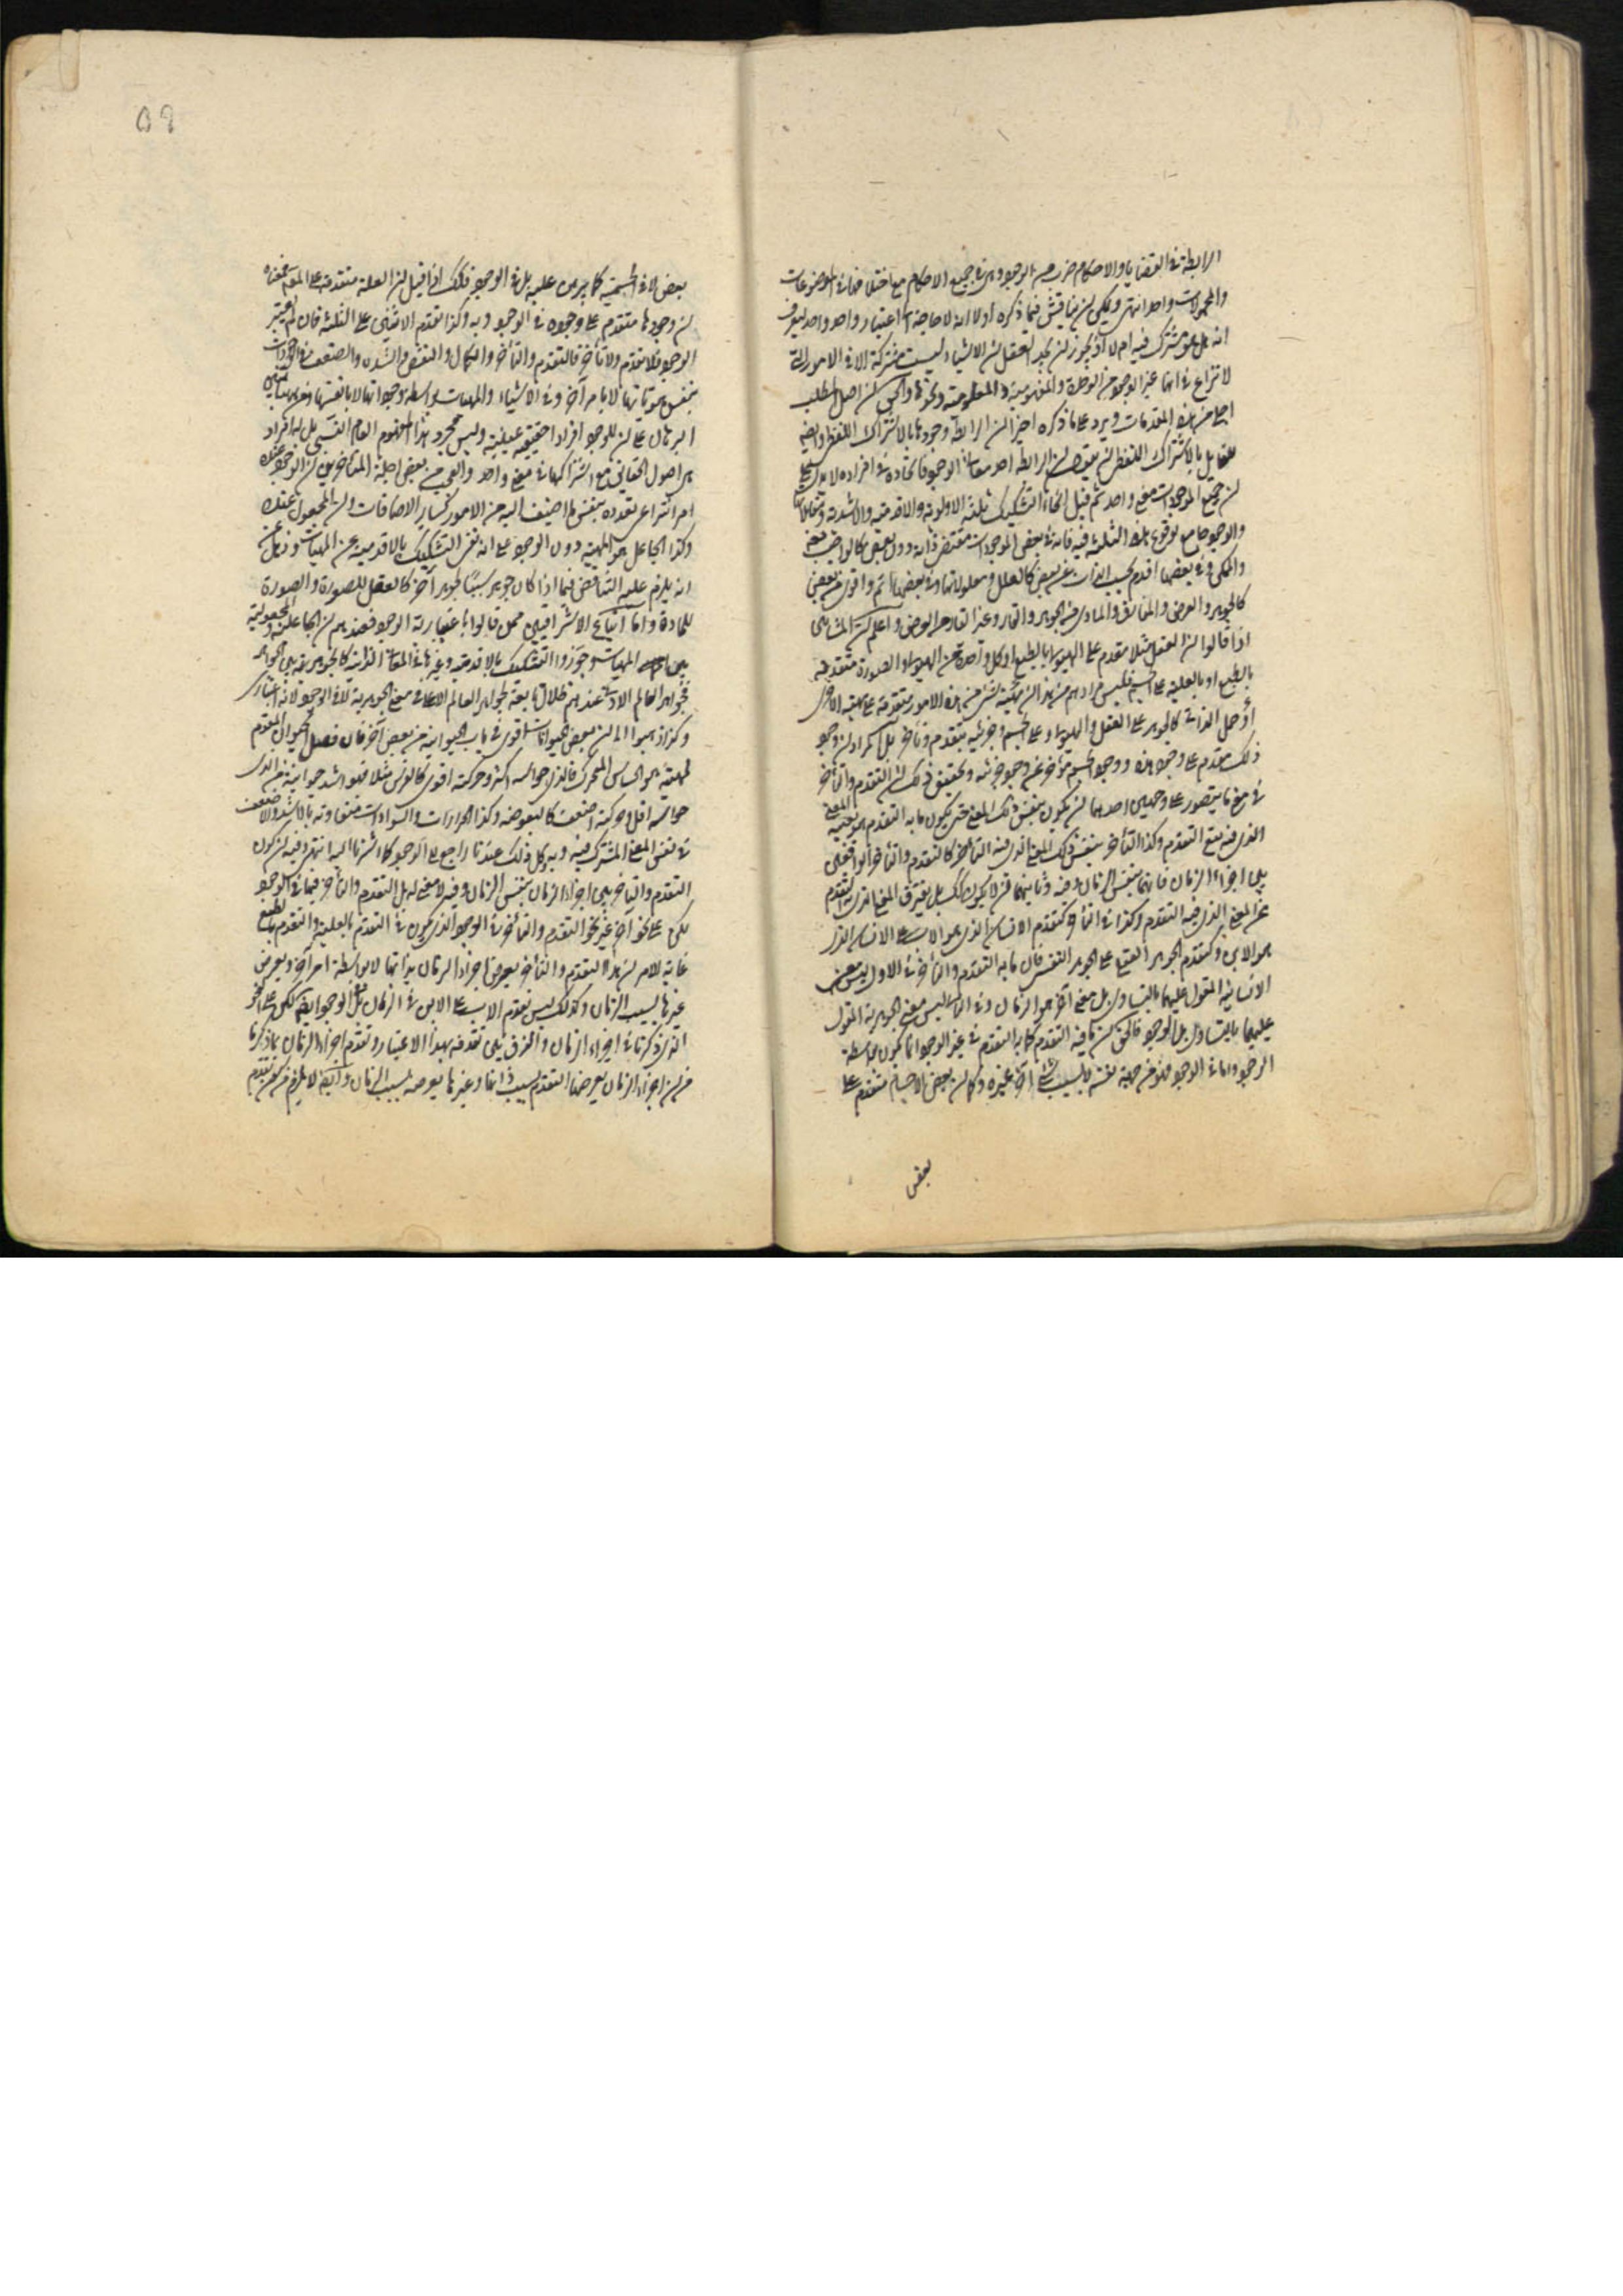 الرابطة في القضايا والاحكام ضرب من الوجود وهي في جميع الاحكام مع اختلافها في الموضوعات
والمحمولات واحد انتهى ويمكن ان يناقش فيما ذكره اولا انه لا حاجة الى اعتبار واحد واحد ليعرف
انه هل هو مشترك فيه ام لا اذ يجوز ان يجد العقل ان الاشياء ليست مشتركة الا في الامور التي
لا نزاع في انها غير الوجود من الوحدة والمفهومية والمعلومية ونحوها والحق ان اصل المطلب
اجلى من هذه المقدمات ويرد على ما ذكره اخيرا ان الرابطة وجودها بالاشتراك اللفظي وايضا
للقايل بالاشتراك اللفظي ان يقول ان الرابطة احد معاني الوجود فاتحاده في افراده لا يدل على
ان جميع الموجودات معنى واحد ثم قيل انحاء التشكيك ثلثة الاولوية والاقدمية والاشدية
والوجود جامع لوقوع هذه الثلثة فيه فانه في بعض الموجودات مقتضى ذاته دون بعض كالواجب
والممكن وفي بعضها اقدم بحسب الذات من بعض كالعلل ومعلولاتها وفي بعضها اتم واقوى من بعض
كالجوهر والعرض والمفارق والمادي من الجوهر والقار وغير القار من العرض واعلم ان المشائين
اذا قالوا ان العقل مثلا متقدم على الهيولى بالطبع او كل واحدة من الهيولى او الصورة متقدمة
بالطبع او بالعلية على الجسم فليس مرادهم من هذا ان مهية شيء من هذه الامور متقدمة على مهية الاخرى
او حمل الذاتي كالجوهر على العقل والهيولى او على الجسم وجزئيه بتقدم وتأخر بل المراد ان وجود
ذلك متقدم على وجود هذه ووجود الجسم متأخر عن وجود جزئيه وتحقيق ذلك ان التقدم والتأخر
في معنى ما يتصور على وجهين احدهما ان يكون بنفس ذلك المعنى حتى يكون ما به التقدم هو بعينه المعنى
الذي فيه يقع التقدم وكذا التأخر بنفس ذلك المعنى الذي فيه التأخر كالتقدم والتأخر الواقعين
بين اجزاء الزمان فانهما بنفس الزمان وفيه وثانيهما ان لا يكون كذلك بل يفترق المعنى الذي به التقدم
عن المعنى الذي فيه التقدم وكذا في التأخر كتقدم الانسان الذي هو الاب على الانسان الذي
هو الابن وكتقدم الجوهر العقلي على الجوهر النفسي فان ما به التقدم والتأخر في الاول ليس معنى
الانسانية المقول عليهما بالتساوي بل معنى آخر هو الزمان وفي الثاني ليس معنى الجوهرية المقول
عليهما بالتساوي بل الوجود فالحق ان ما فيه التقدم كما به التقدم في غير الوجود انما يكون بواسطة
الوجود واما في الوجود فهو من جهة نفسه لا بسبب شيء آخر غيره وكما ان بعض الاجسام متقدم على
بعض
بعض لا في الجسمية كما يبرهن عليه بل في الوجود فكذلك اذا قيل ان العلة متقدمة على المعلول فمعناه
ان وجودها متقدم على وجوده في الوجود وبه وكذا تقدم الاثنين على الثلثة فان لم يعتبر
الوجود فلا تقدم ولا تأخر فالتقدم والتأخر والكمال والنقص والشدة والضعف في الوجودات
بنفس هوياتها لا بامر آخر وفي الاشياء والمهيات بواسطة وجوداتها لا بانفسها
البرهان على ان للوجود افرادا حقيقية عينية وليس مجرد هذا المفهوم العام النسبي بل له افراد
هي اصول الحقايق مع اشتراكها في معنى واحد والعجب من بعض اجلة المتأخرين ان الوجود عنده
امر انتزاعي تعدده بنفس ما اضيف اليه من الامور كساير الاضافات وان المجعول عنده
وكذا الجاعل هو المهية دون الوجود على انه نفى التشكيك بالاقدمية عن المهيات وغفل عن
انه يلزم عليه التناقض فيما اذا كان جوهر سببا لجوهر آخر كالعقل للصورة والصورة
للمادة واما اتباع الاشراقيين ممن قالوا باعتبارية الوجود فعندهم ان الجاعلية والمجعولية
بين المهيات وجوزوا التشكيك بالاقدمية وغيرها في المعاني الذاتية كالجوهرية بين الجواهر
فجواهر العالم الادنى عندهم ظلال تابعة لجواهر العالم الاعلى في معنى الجوهرية لا في الوجود لانه اعتباري
وكذا ذهبوا الى ان بعض الحيوانات اقوى في باب الحيوانية من بعض آخر فان فصل الحيوان المقوم
لمهيته هو الحساس المتحرك فالذي حواسه اكثر وحركته اقوى كالفرس مثلا فهو اشد حيوانية من الذي
حواسه اقل وحركته اضعف كالبعوضة وكذا الحرارات والسوادات متفاوتة بالاشد والاضعف
في نفس المعنى المشترك فيه وبه وكل ذلك عندنا راجع الى الوجود كما اشرنا اليه انتهى وفيه ان كون
التقدم والتأخر بين اجزاء الزمان بنفس الزمان وفيه لا معنى له بل التقدم والتأخر فيها في الوجود
لكن على نحو آخر غير نحو التقدم والتأخر في الوجود الذي يكون في التقدم بالعلية والتقدم بالطبع
غاية الامر ان هذا التقدم والتأخر يعرض اجزاء الزمان بذاتها لا بواسطة امر آخر ويعرض
غيرها بسبب الزمان وكذلك ليس تقدم الاب على الابن في الزمان بل في الوجود ايضا لكن على النحو
الذي ذكرنا في اجزاء الزمان والفرق بين تقدمه بهذا الاعتبار وتقدم اجزاء الزمان ما ذكرنا
من ان اجزاء الزمان يعرضها التقدم بسبب ذاتها وغيرها يعرضه بسبب الزمان وايضا لا يلزم من تقدم